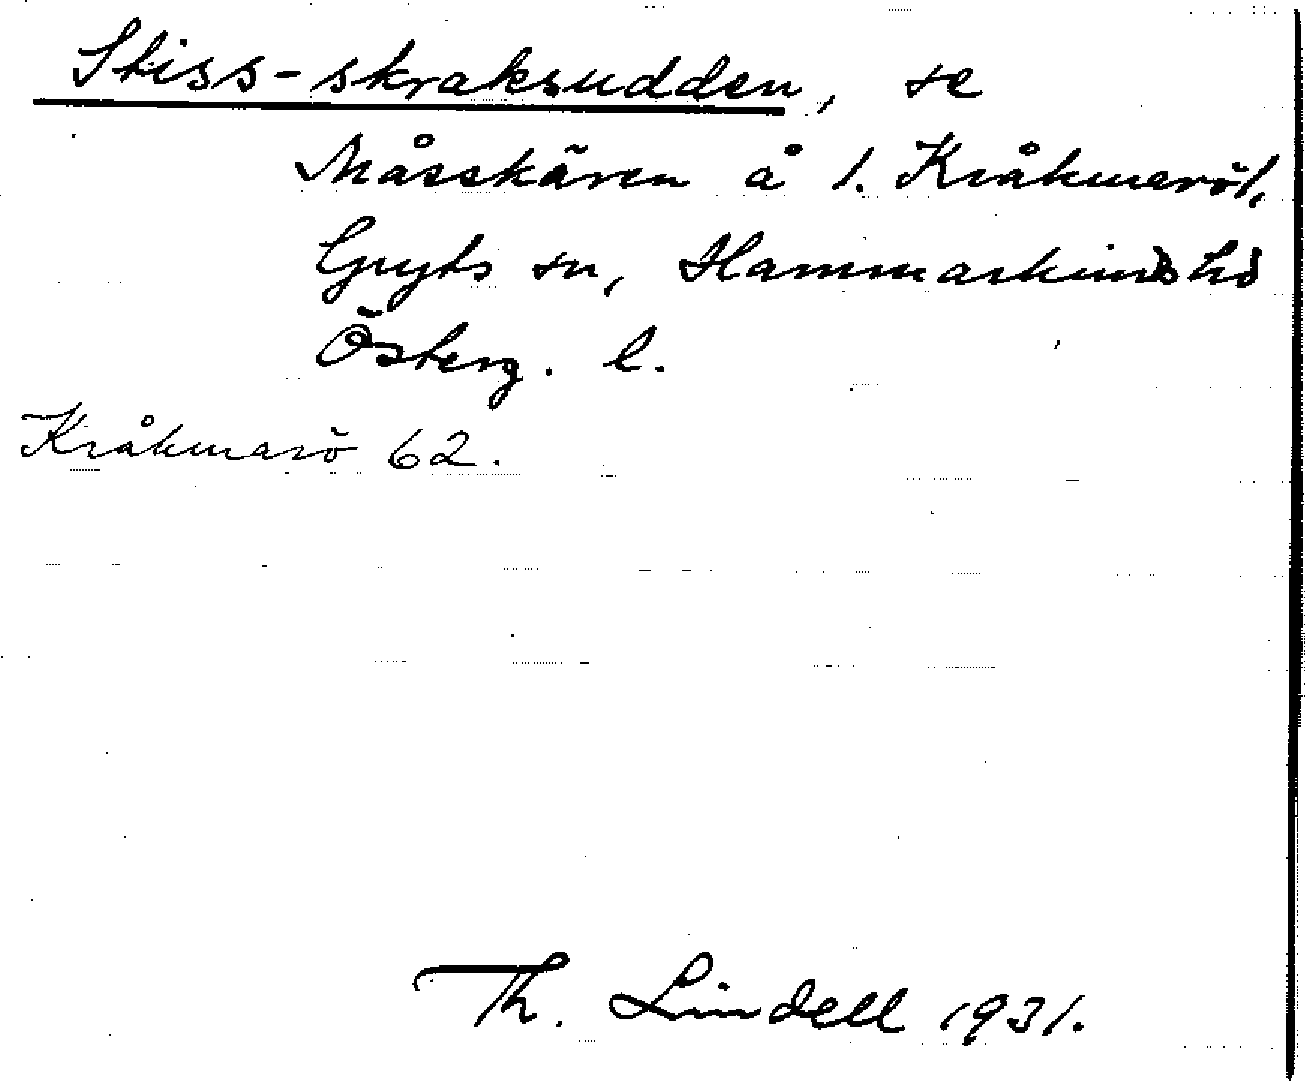 Stiss-skraksudden, se
Måsskären å /. Kråkmarö/.
Gryts sn, Hammarkinds hd
Österg. l.
Kråkmarö 62.
Th. Lindell 1931.